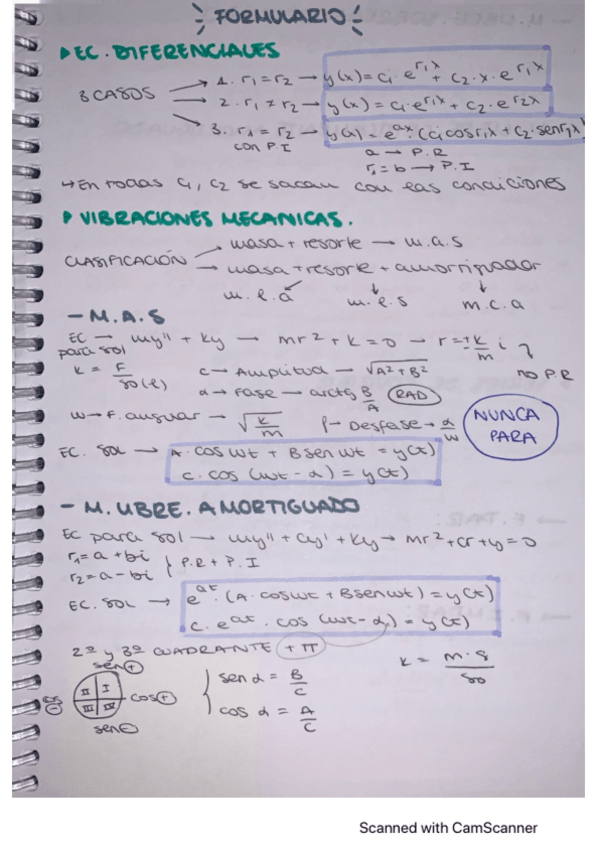 FORMULARIO
▸ EC. DIFERENCIALES
3 CASOS
→ 1. r₁ = r₂ → y(x) = c₁ · e^{r₁x} + c₂ · x · e^{r₁x}
→ 2. r₁ ≠ r₂ → y(x) = c₁ · e^{r₁x} + c₂ · e^{r₂x}
→ 3. r₁ = r₂ → y(x) = e^{ax} · (c₁ cos r₁x + c₂ · sen r₁x)
con P.I
a → P.R
r₁ = b → P.I
↪ En todas c₁, c₂ se sacan con las condiciones
▸ VIBRACIONES MECANICAS.
CLASIFICACIÓN
→ masa + resorte → m.a.s
→ masa + resorte + amortiguador
m.l.a
m.l.s
m.c.a
- M.A.S
EC para sol → my'' + Ky → mr² + k = 0 → r = ± k/m i
no P.R
k = F/so(l)
c → Amplitud → √A² + B²
α → Fase → arctg B/A (RAD)
w → F. angular → √k/m
β → Desfase → α/w
NUNCA PARA
EC. SOL → A · cos wt + B sen wt = y(t)
c · cos (wt - α) = y(t)
- M. LIBRE. AMORTIGUADO
EC para sol → my'' + Cy' + Ky → mr² + cr + y = 0
r₁ = a + bi
r₂ = a - bi
} P.R + P.I
EC. SOL → e^{at} · (A · cos wt + B sen wt) = y(t)
c · e^{at} · cos (wt - α) = y(t)
2º y 3º CUADRANTE (+ π)
k = m·g/so
sen ⊕
II I
III IV
cos ⊕
cos ⊖
sen ⊖
sen α = B/C
cos α = A/C
Scanned with CamScanner